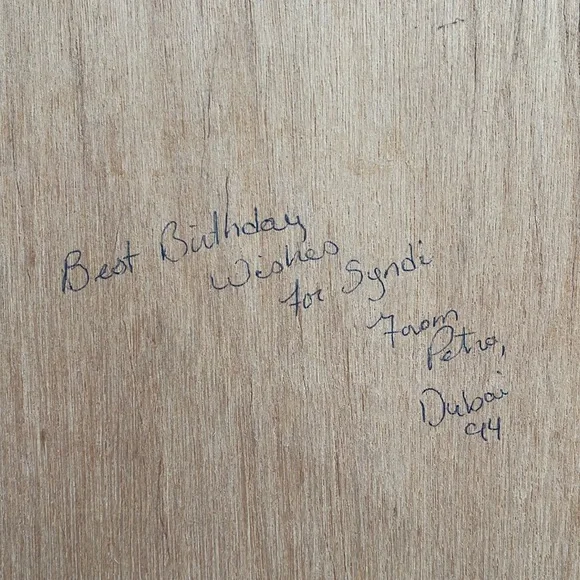 Best Birthday
Wishes
for Syndi
From
Petra,
Dubai
94